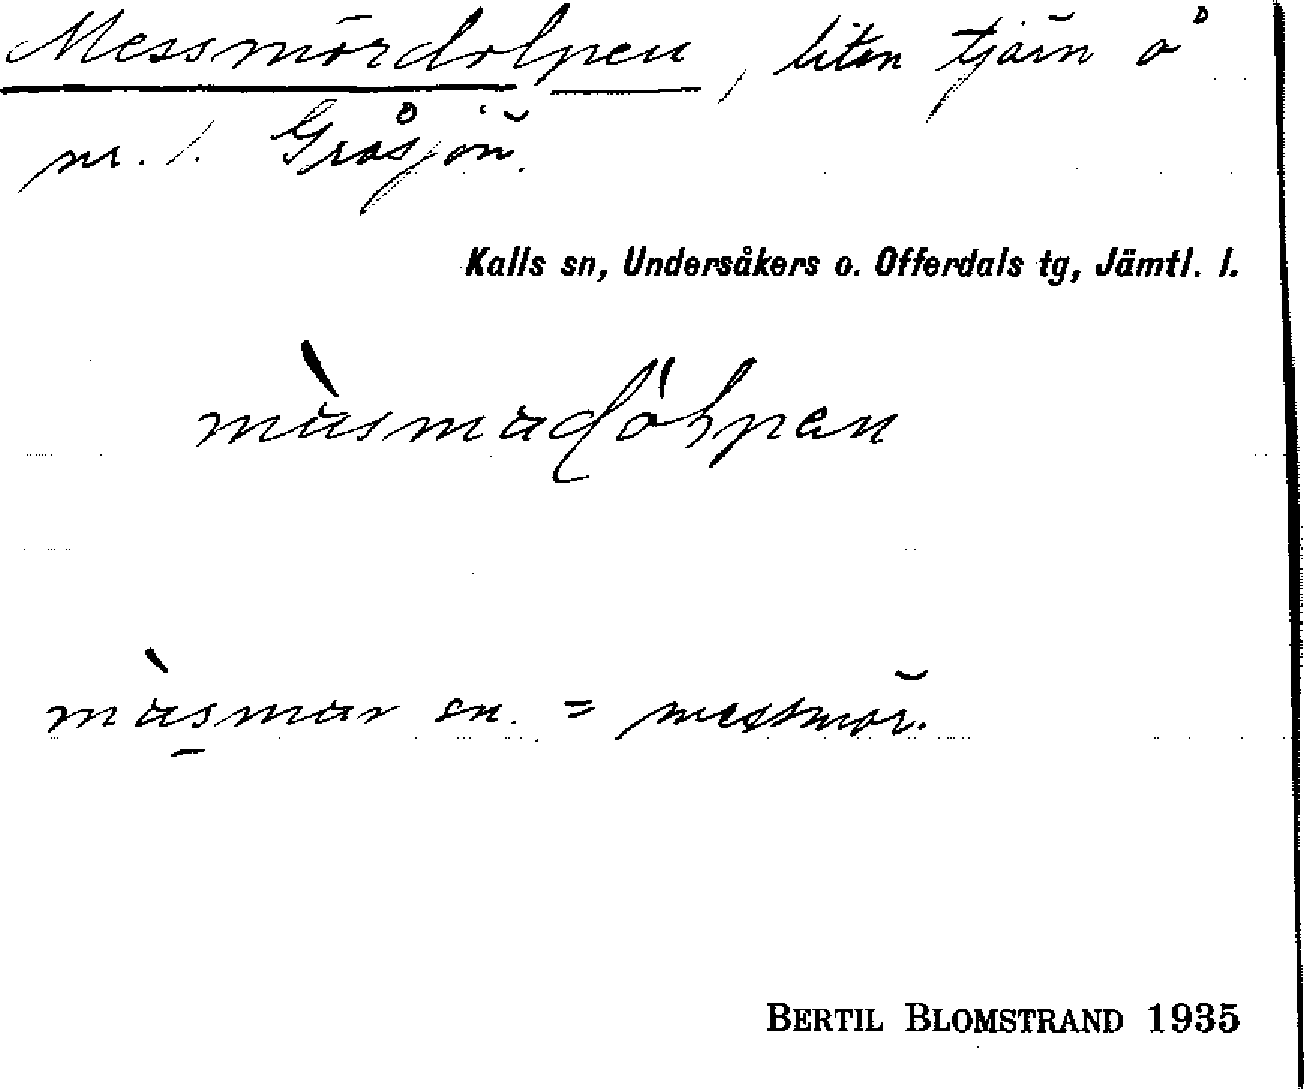 Messmördolpen, liten tjärn å
nr. 1. Gråsjön.
Kalls sn, Undersåkers o. Offerdals tg, Jämtl. l.
sn. = messmör.
BERTIL BLOMSTRAND 1935